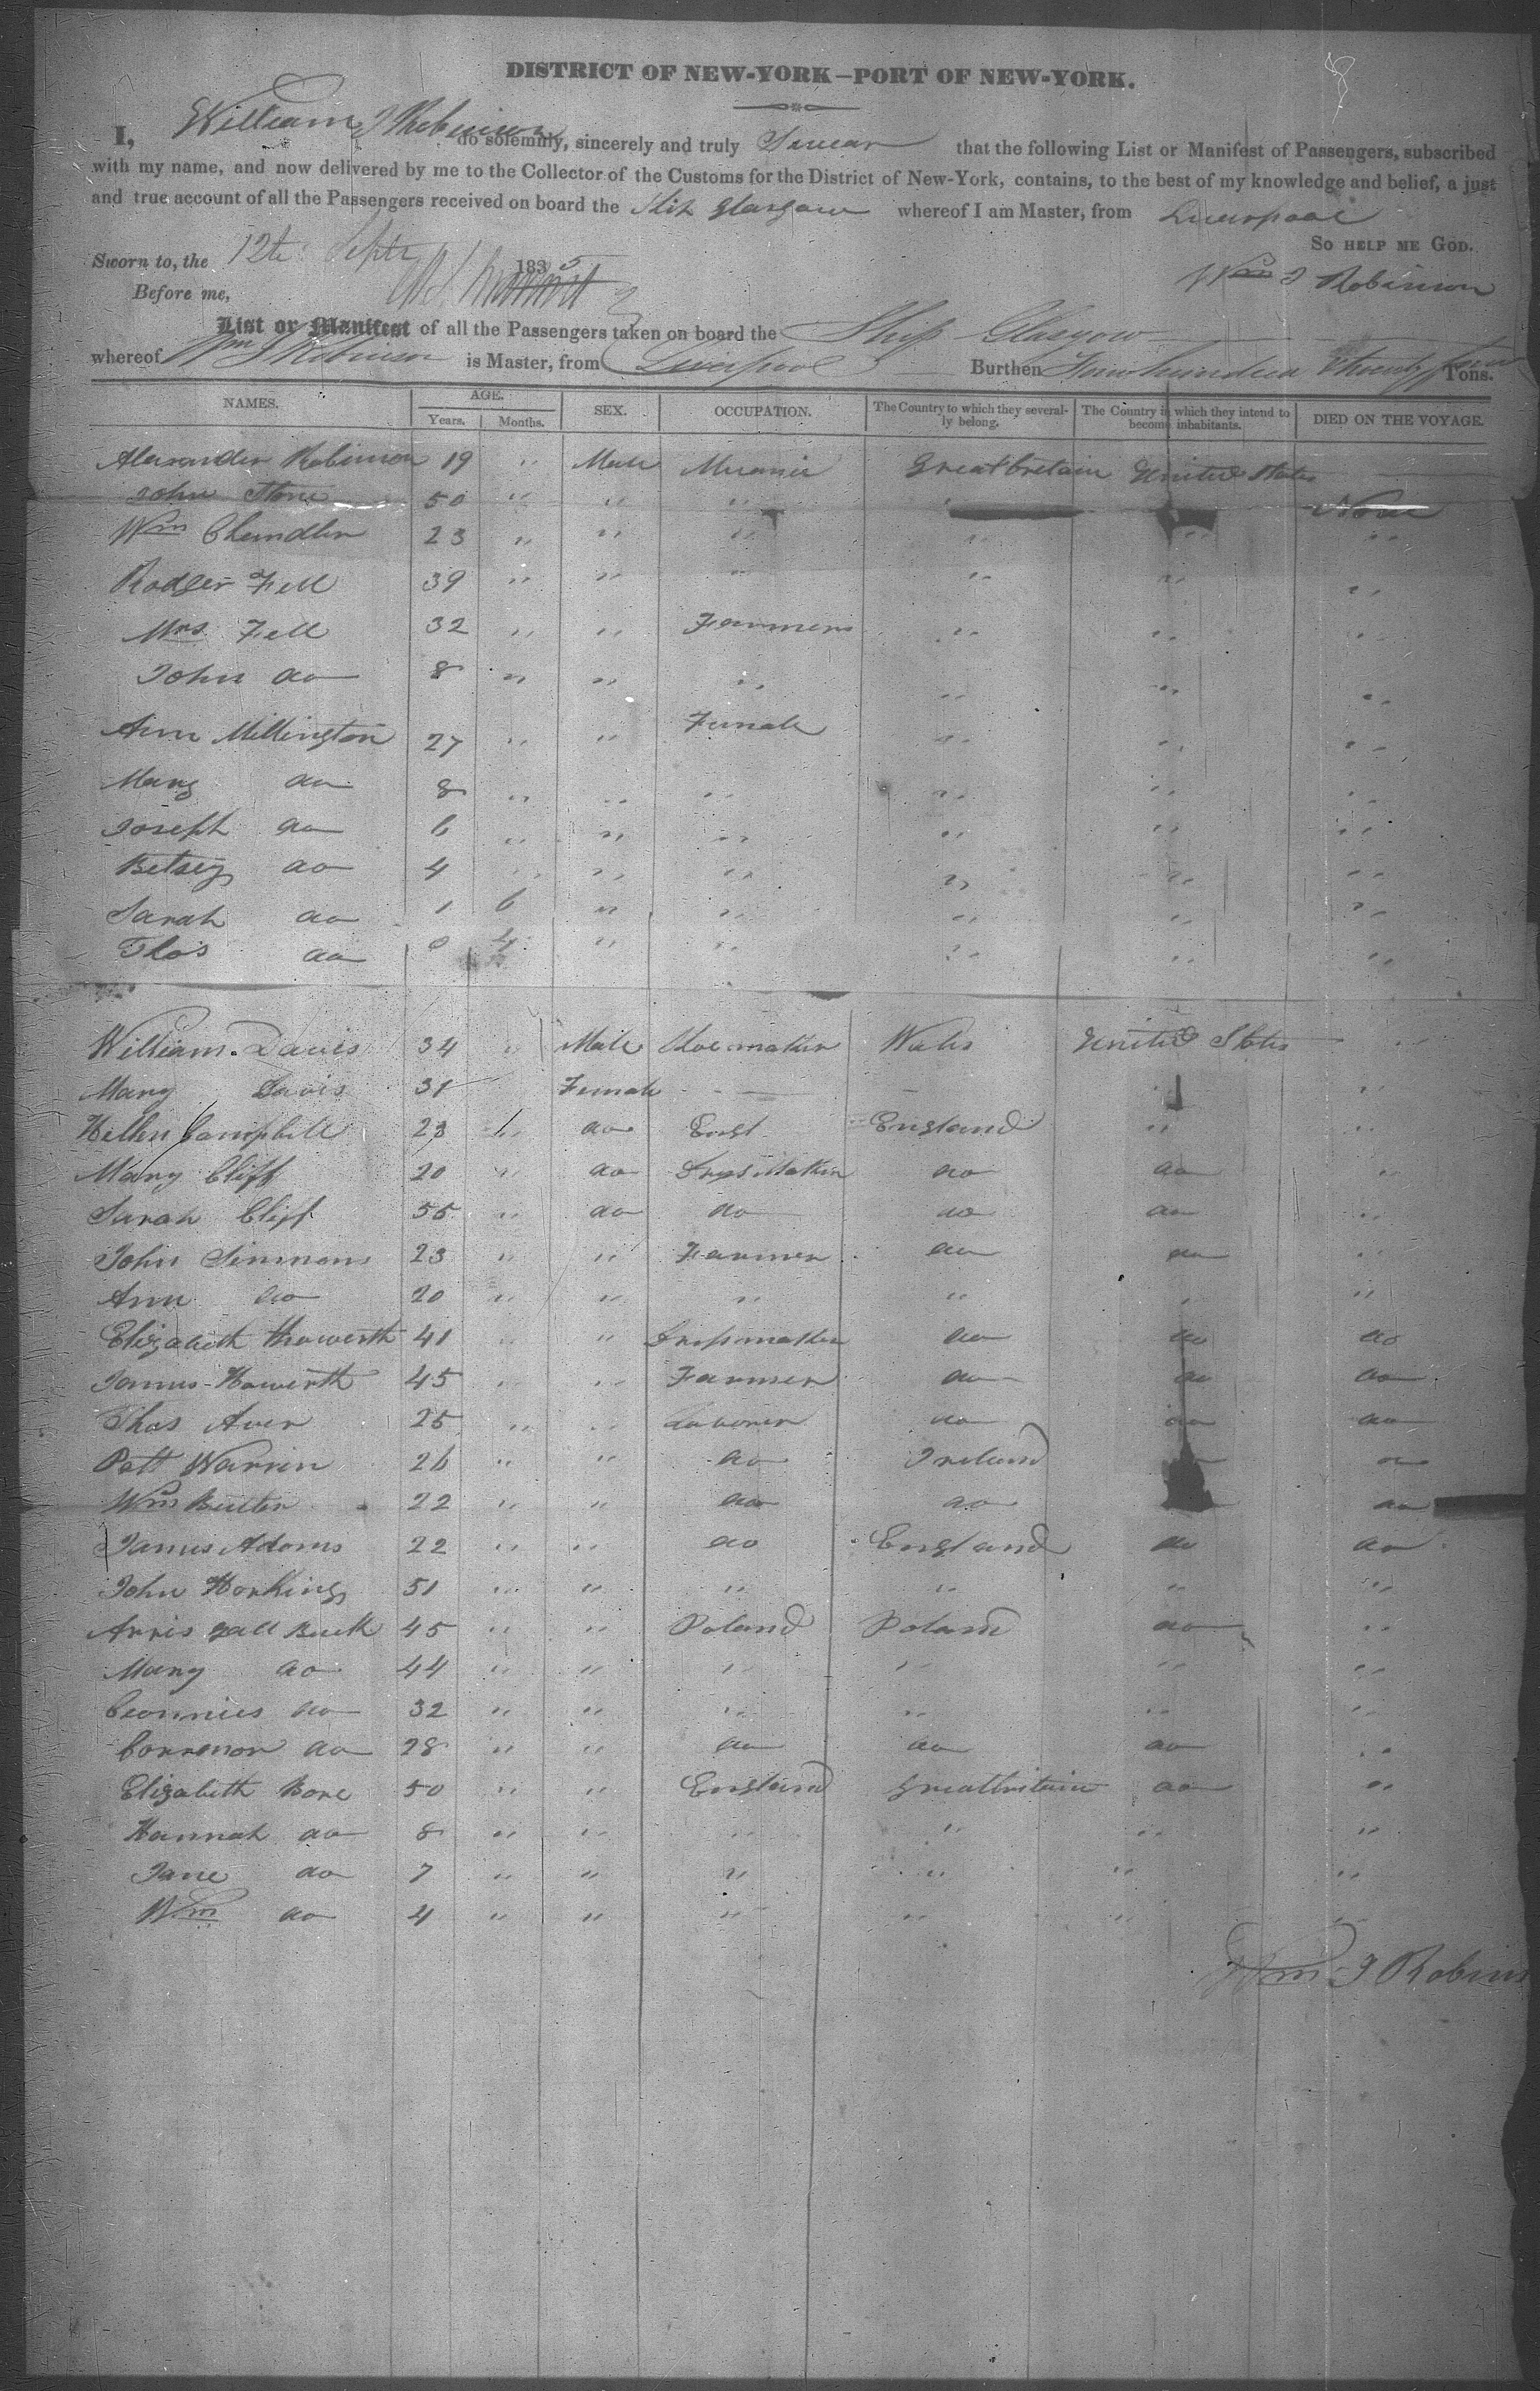 8
DISTRICT OF NEW-YORK—PORT OF NEW-YORK.
I, William J Robinson do solemnly, sincerely and truly Swear that the following List or Manifest of Passengers, subscribed
with my name, and now delivered by me to the Collector of the Customs for the District of New-York, contains, to the best of my knowledge and belief, a just
and true account of all the Passengers received on board the Ship Glasgow whereof I am Master, from Liverpool
SO HELP ME GOD.
Sworn to, the 12th Septr 1835
Wm J Robinson
Before me,
List or Manifest of all the Passengers taken on board the Ship Glasgow
whereof Wm J Robinson is Master, from Liverpool Burthen Tons.
NAMES. AGE. SEX. OCCUPATION. The Country to which they severally belong. The Country in which they intend to become inhabitants. DIED ON THE VOYAGE.
Years. Months.
Alexander Robinson 19 " Male Mecanic Great bretain United States
John Stone 50 " " " " None
Wm Chandler 23 " " " " " "
Rodger Fell 39 " " " " " "
Mrs Fell 32 " " Farmers " " "
John do 8 " " " " " "
Ann Millington 27 " " Female " " "
Mary do 8 " " " " " "
Joseph do 6 " " " " " "
Betsey do 4 " " " " " "
Sarah do 1 6 " " " " "
Thos do 0 4 " " " " "
William Davis 34 " Male Shoemaker Wales United States "
Mary Davis 31 Female — — " "
Hellen Campbell 23 " do Engl England " "
Mary Cliff 20 " do Dressmaker do do "
Sarah Cliff 55 " do do do do "
John Simmons 23 " " Farmer do do "
Ann do 20 " " " " " "
Elizabeth Haworth 41 " " Dressmaker do do do
James Haworth 45 " " Farmer do do do
Thos Aver 25 " " Laborer do do do
Patt Warrin 26 " " do Ireland do
Wm Butler 22 " " do do do
James Adams 22 " " do England do do
John Horkings 51 " " " " " "
45 " " Poland Poland do "
Mary do 44 " " " " " "
do 32 " " " " " "
do 28 " " do do do "
Elizabeth Bore 50 " " England Greatbritain do "
Hannah do 8 " " " " " "
Jane do 7 " " " " " "
Wm do 4 " " " " "
Wm J Robins